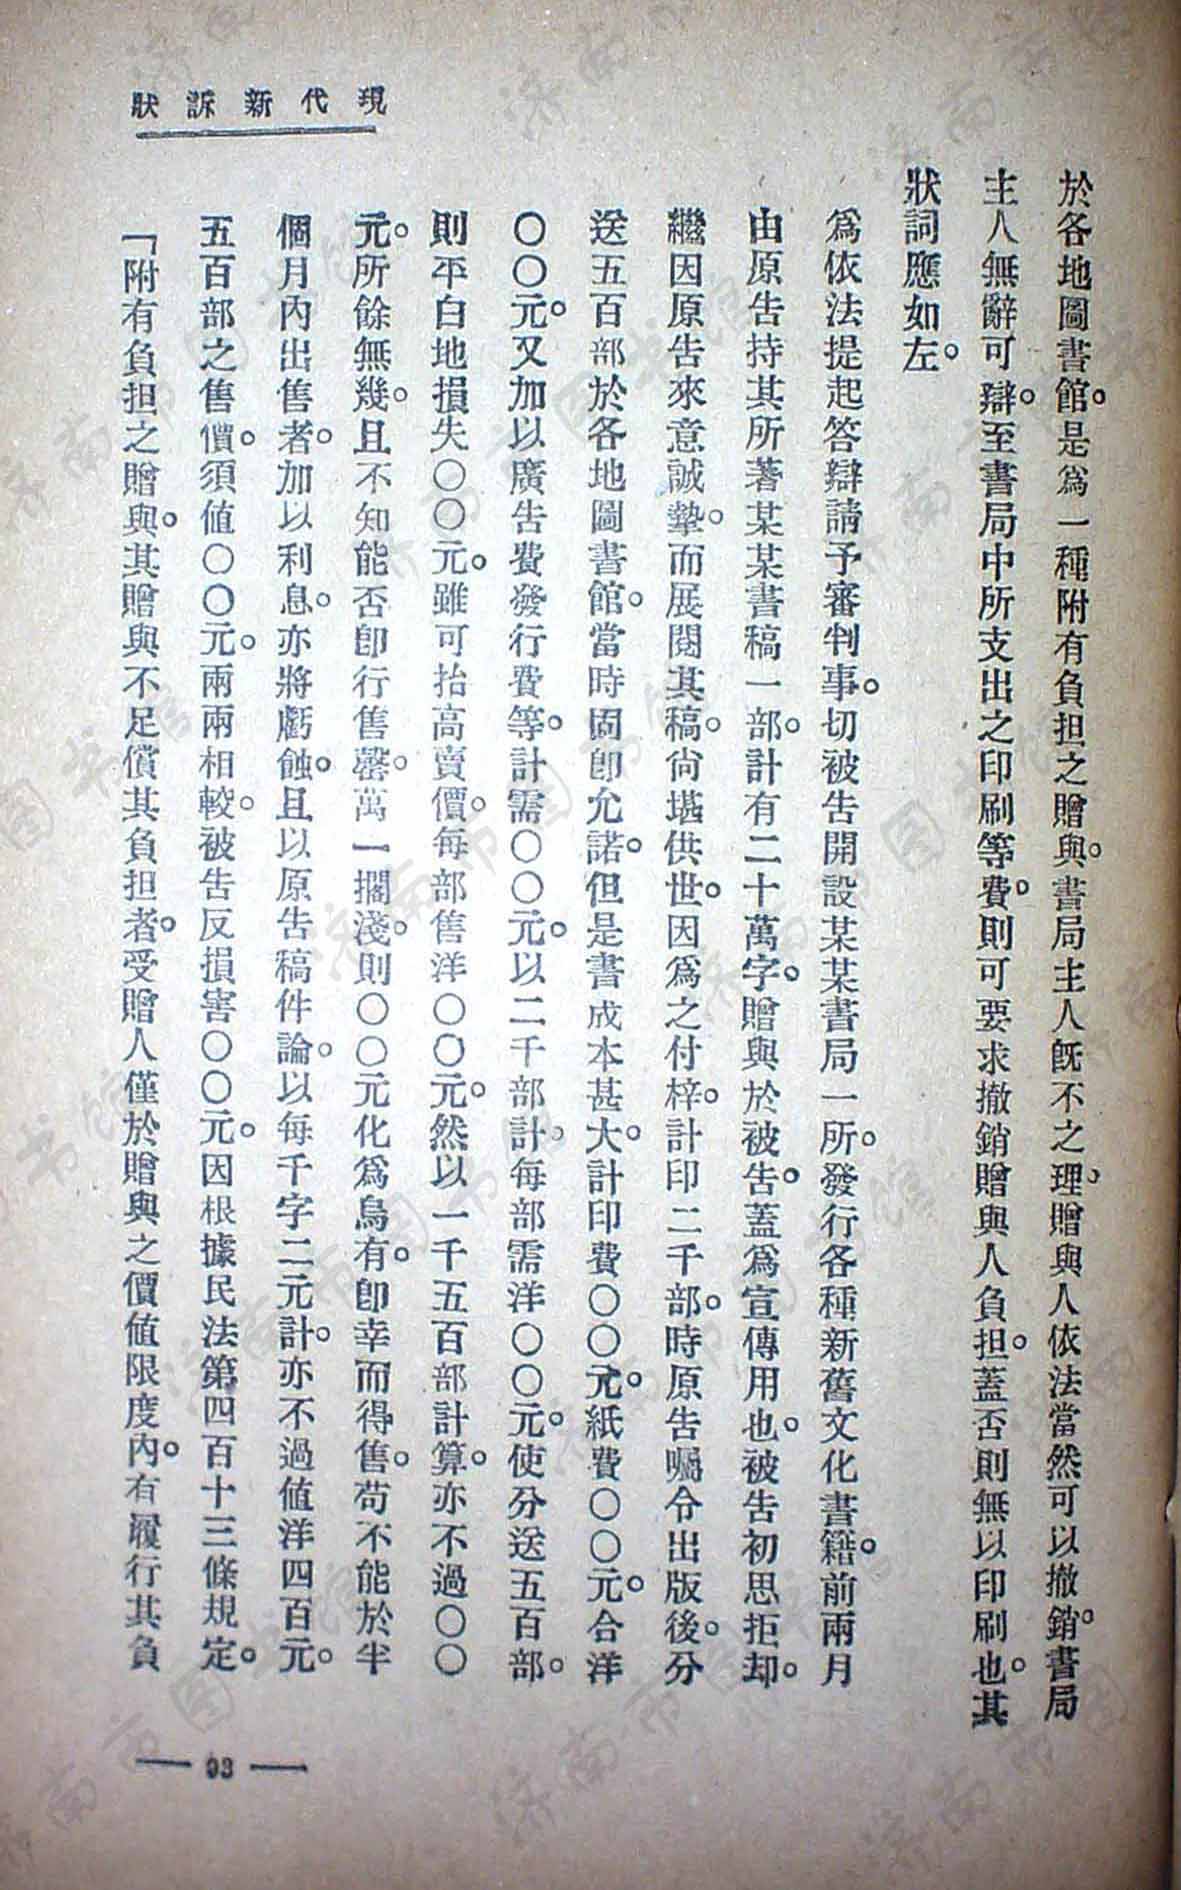 現代新訴狀
於各地圖書館。是爲一種附有負担之贈與。書局主人旣不之理、贈與人依法當然可以撤銷。書局
主人無辭可辯。至書局中所支出之印刷等費。則可要求撤銷贈與人負担。蓋否則無以印刷也。其
狀詞應如左。
爲依法提起答辯請予審判事。切被告開設某某書局一所。發行各種新舊文化書籍。前兩月
由原告持其所著某某書稿一部。計有二十萬字。贈與於被告。蓋爲宣傳用也。被告初思拒却。
繼因原告來意誠摯。而展閱其稿。尙堪供世。因爲之付梓。計印二千部。時原告囑令出版後。分
送五百部於各地圖書館。當時固卽允諾。但是書成本甚大。計印費〇〇元。紙費〇〇元。合洋
〇〇元。又加以廣告費發行費等。計需〇〇元。以二千部計。每部需洋〇〇元。使分送五百部。
則平白地損失〇〇元。雖可抬高賣價。每部售洋〇〇元。然以一千五百部計算。亦不過〇〇
元。所餘無幾。且不知能否卽行售罄。萬一擱淺。則〇〇元化爲烏有。卽幸而得售。苟不能於半
個月內出售者。加以利息。亦將虧蝕。且以原告稿件論。以每千字二元計。亦不過值洋四百元。
五百部之售價。須值〇〇元。兩兩相較。被告反損害〇〇元。因根據民法第四百十三條規定。
「附有負担之贈與。其贈與不足償其負担者。受贈人僅於贈與之價値限度內。有履行其負
— 93 —
济南市图书馆